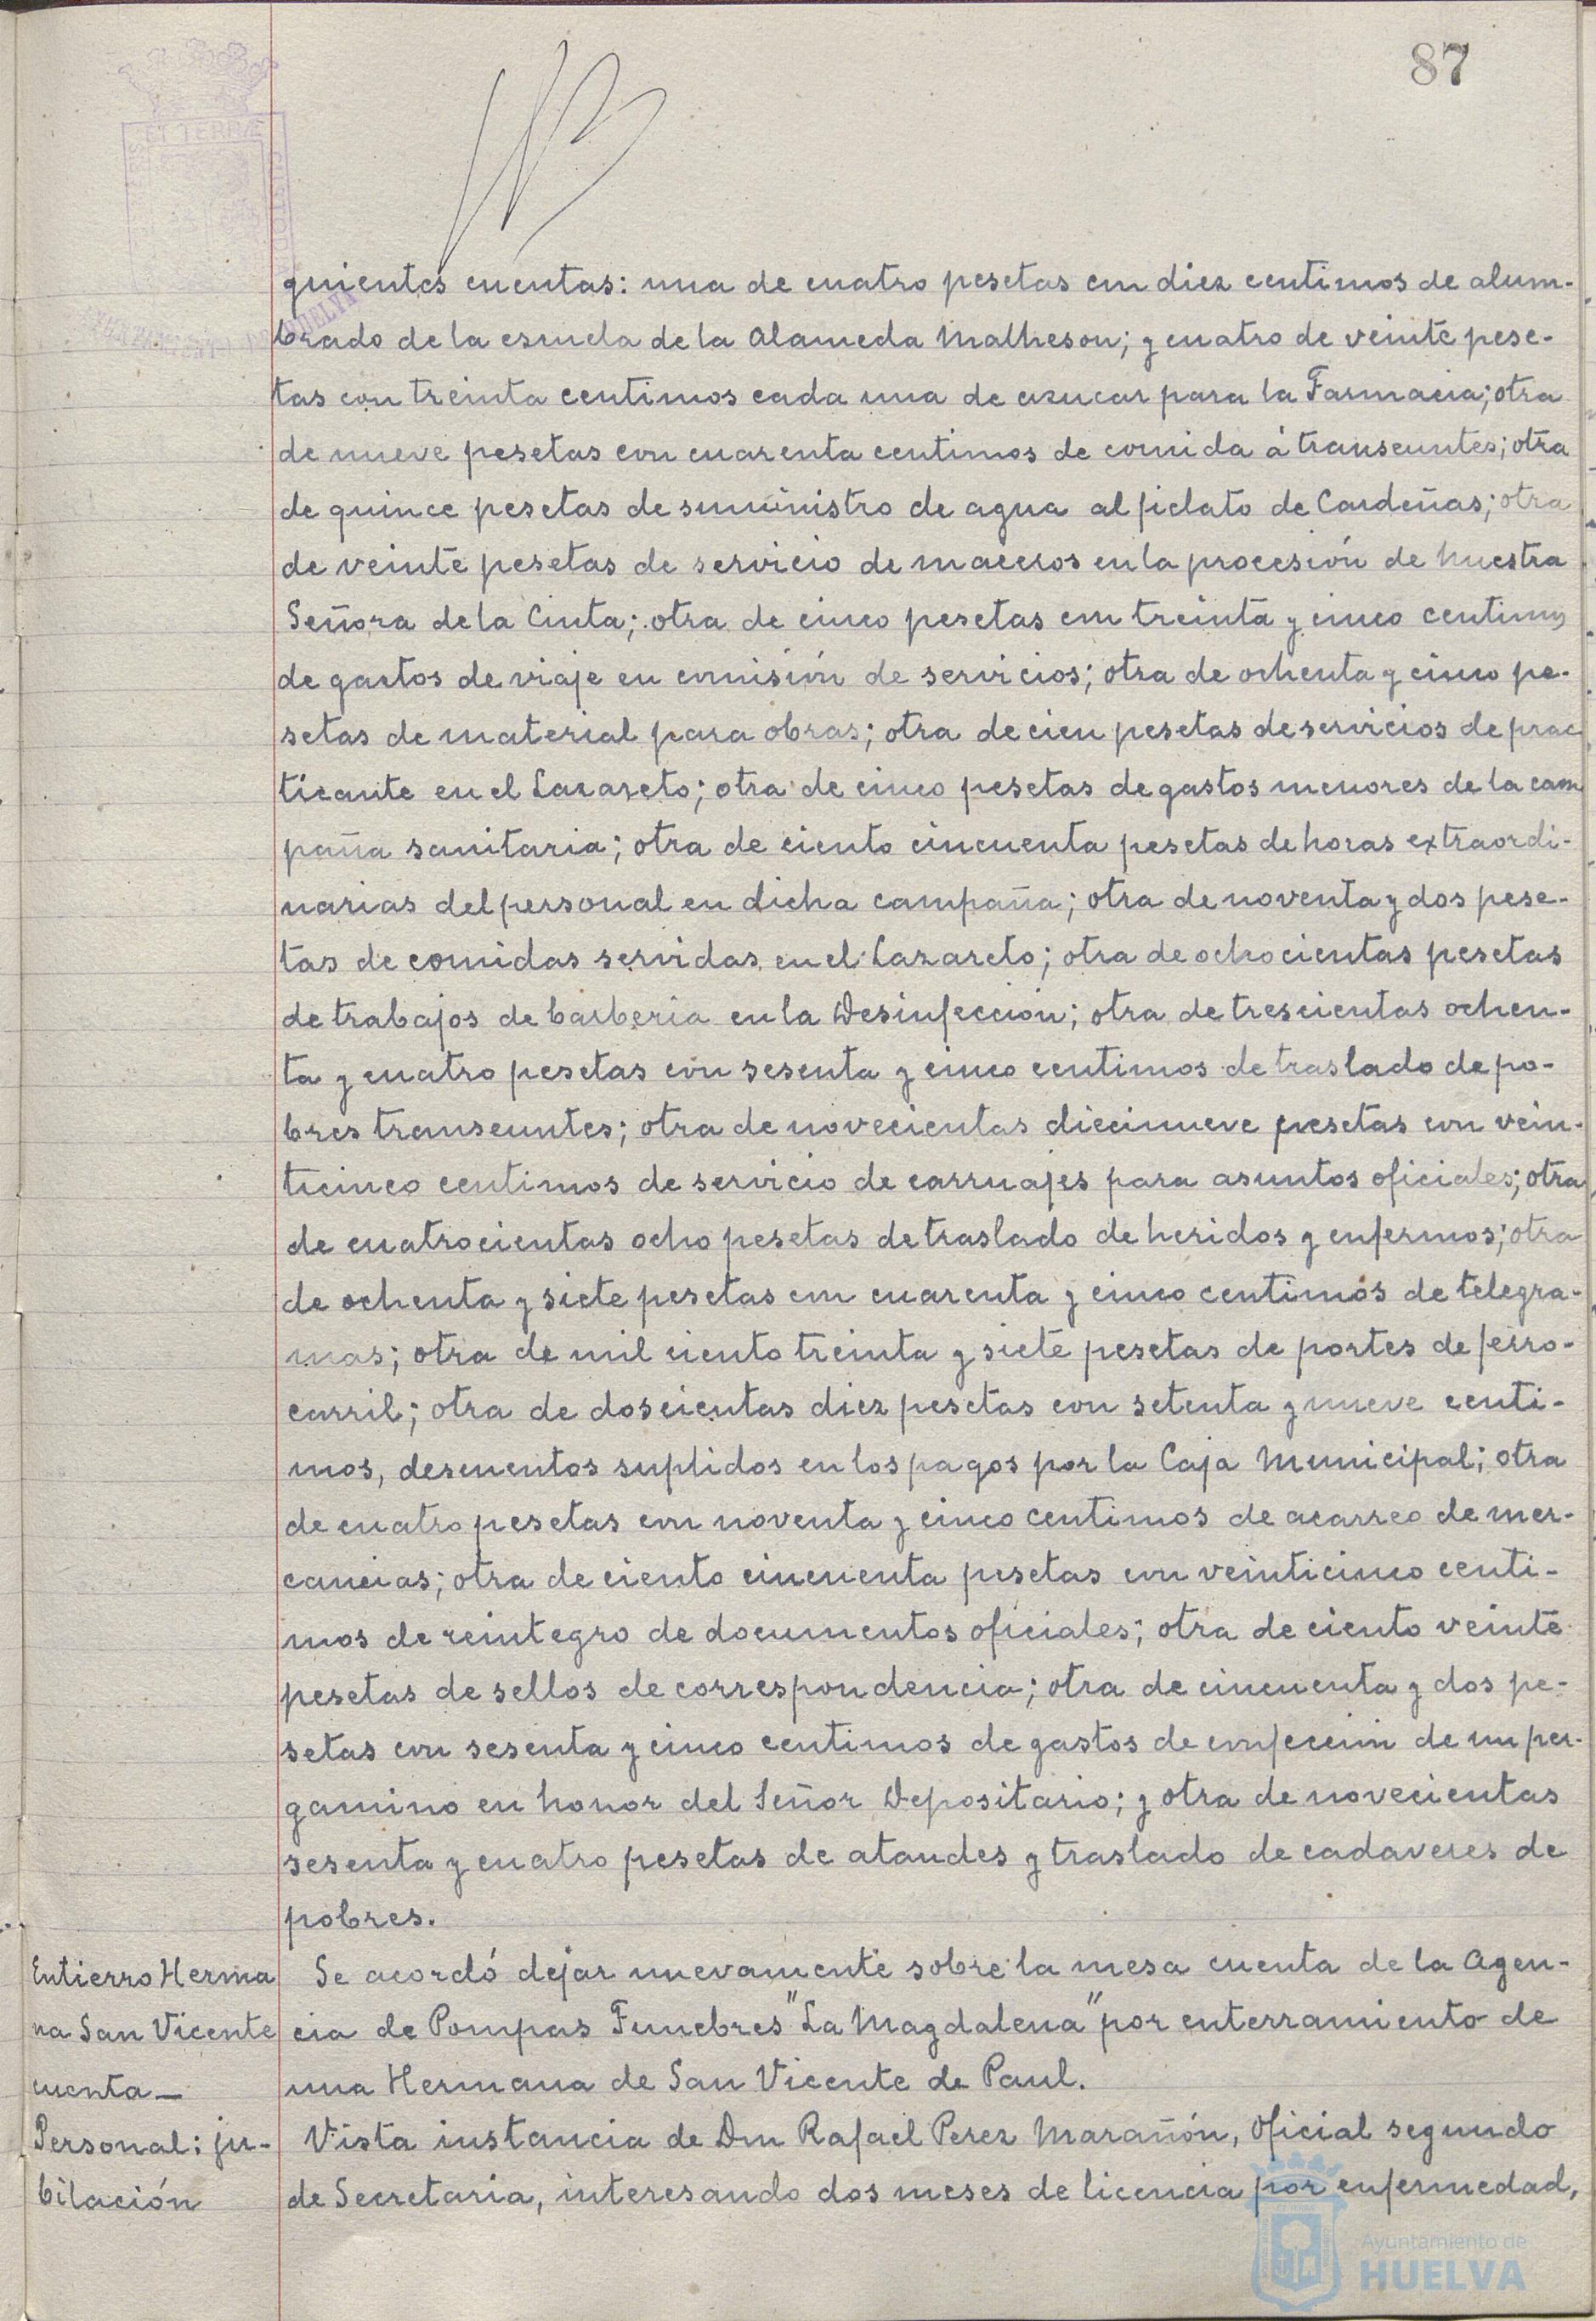 87
guientes cuentas: una de cuatro pesetas con diez centimos de alum-
brado de la escuela de la Alameda Malheson; y cuatro de veinte pese-
tas con treinta centimos cada una de azucar para la Farmacia; otra
de nueve pesetas con cuarenta centimos de comida á transeuntes; otra
de quince pesetas de suministro de agua al fielato de Cardeñas; otra
de veinte pesetas de servicio de maceros en la procesión de Nuestra
Señora de la Cinta; otra de cinco pesetas con treinta y cinco centimos
de gastos de viaje en comisión de servicios; otra de ochenta y cinco pe-
setas de material para obras; otra de cien pesetas de servicios de prac
ticante en el Lazareto; otra de cinco pesetas de gastos menores de la cam
paña sanitaria; otra de ciento cincuenta pesetas de horas extraordi-
narias del personal en dicha campaña; otra de noventa y dos pese-
tas de comidas servidas en el Lazareto; otra de ochocientas pesetas
de trabajos de barberia en la Desinfección; otra de trescientas ochen-
ta y cuatro pesetas con sesenta y cinco centimos de traslado de po-
bres transeuntes; otra de novecientas diecinueve pesetas con vein-
ticinco centimos de servicio de carruajes para asuntos oficiales; otra
de cuatrocientas ocho pesetas de traslado de heridos y enfermos; otra
de ochenta y siete pesetas con cuarenta y cinco centimos de telegra-
mas; otra de mil ciento treinta y siete pesetas de portes de ferro-
carril; otra de doscientas diez pesetas con setenta y nueve centi-
mos, descuentos suplidos en los pagos por la Caja Municipal; otra
de cuatro pesetas con noventa y cinco centimos de acarreo de mer-
cancias; otra de ciento cincuenta pesetas con veinticinco centi-
mos de reintegro de documentos oficiales; otra de ciento veinte
pesetas de sellos de correspondencia; otra de cincuenta y dos pe-
setas con sesenta y cinco centimos de gastos de confección de un per-
gamino en honor del Señor Depositario; y otra de novecientas
sesenta y cuatro pesetas de ataudes y traslado de cadaveres de
pobres.
Entierro Herma
na San Vicente
cuenta—
Se acordó dejar nuevamente sobre la mesa cuenta de la Agen-
cia de Pompas Funebres "La Magdalena" por enterramiento de
una Hermana de San Vicente de Paul.
Personal: ju-
bilación
Vista instancia de Don Rafael Perez Marañón, Oficial segundo
de Secretaria, interesando dos meses de licencia por enfermedad,
Ayuntamiento de
HUELVA